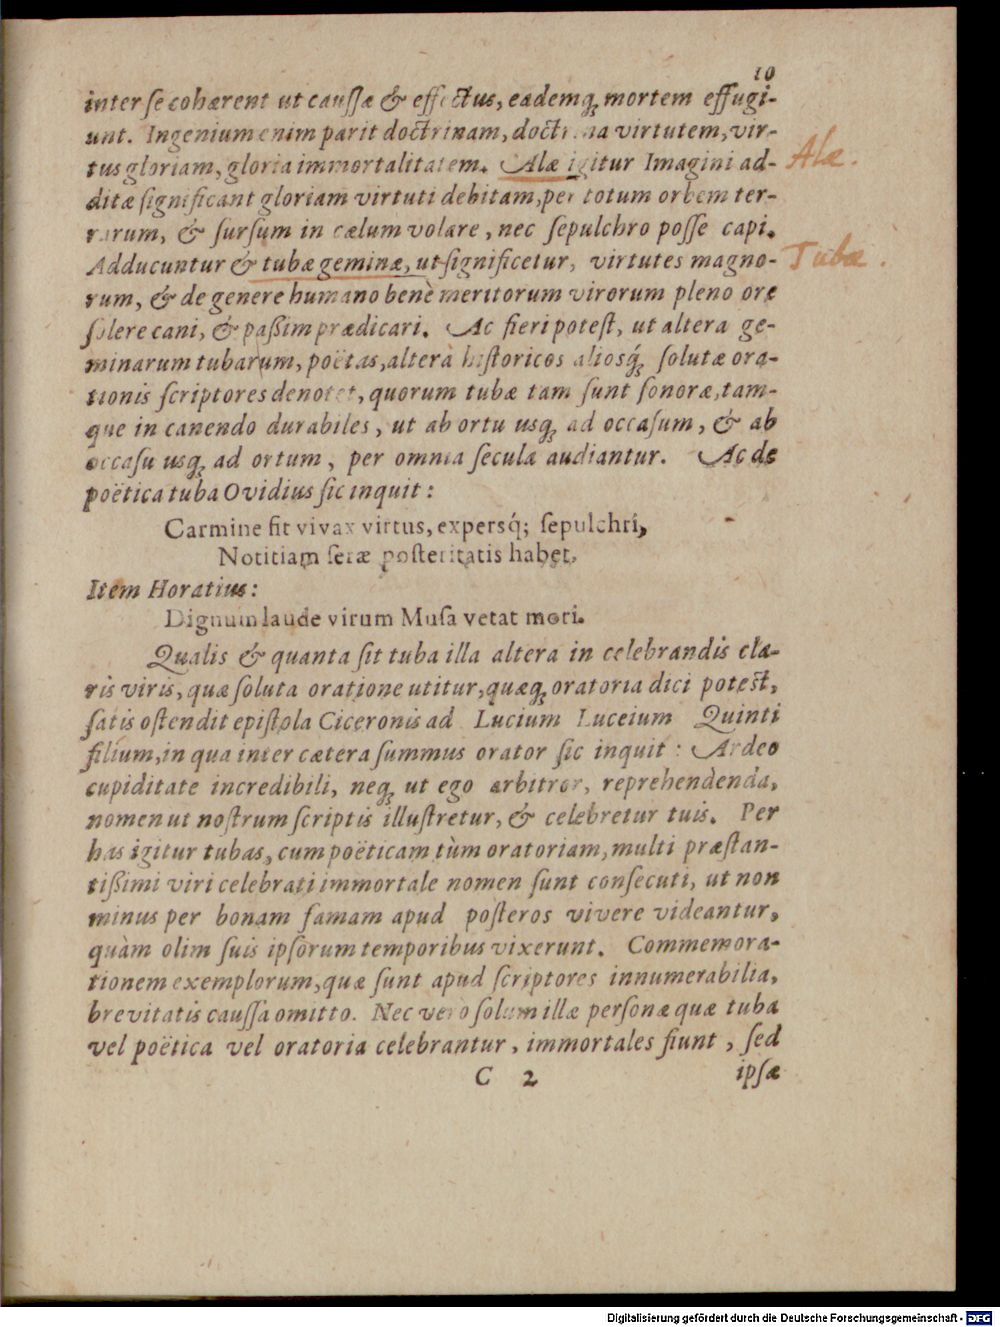 10
inter se cohærent ut caussæ & effectus, eademq́ mortem effugi-
unt. Ingenium enim parit doctrinam, doctrina virtutem, vir-
tus gloriam, gloria immortalitatem. Alæ igitur Imagini ad-
ditæ significant gloriam virtuti debitam, per totum orbem ter-
rarum, & sursum in cælum volare, nec sepulchro posse capi.
Adducuntur & tubæ geminæ, ut significetur, virtutes magno-
rum, & de genere humano benè meritorum virorum pleno ore
solere cani, & paßim prædicari. Ac fieri potest, ut altera ge-
minarum tubarum, poëtas, altera historicos aliosq́ solutæ ora-
tionis scriptores denotet, quorum tubæ tam sunt sonoræ, tam-
que in canendo durabiles, ut ab ortu usq́ ad occasum, & ab
occasu usq́ ad ortum, per omnia secula audiantur. Ac de
poëtica tuba Ovidius sic inquit:
Carmine fit vivax virtus, expersq́; sepulchri,
Notitiam seræ posteritatis habet.
Item Horatius:
Dignum laude virum Musa vetat mori.
Qualis & quanta sit tuba illa altera in celebrandis cla-
ris viris, quæ soluta oratione utitur, quæq́ oratoria dici potest,
satis ostendit epistola Ciceronis ad Lucium Luceium Quinti
filium, in qua inter cætera summus orator sic inquit: Ardeo
cupiditate incredibili, neq́ ut ego arbitror, reprehendenda,
nomen ut nostrum scriptis illustretur, & celebretur tuis. Per
has igitur tubas, cum poëticam tùm oratoriam, multi præstan-
tißimi viri celebrati immortale nomen sunt consecuti, ut non
minus per bonam famam apud posteros vivere videantur,
quàm olim suis ipsorum temporibus vixerunt. Commemora-
tionem exemplorum, quæ sunt apud scriptores innumerabilia,
brevitatis caussa omitto. Nec vero solum illæ personæ quæ tuba
vel poëtica vel oratoria celebrantur, immortales fiunt, sed
C 2 ipsæ
Alæ.
Tubæ.
Digitalisierung gefördert durch die Deutsche Forschungsgemeinschaft - DFG